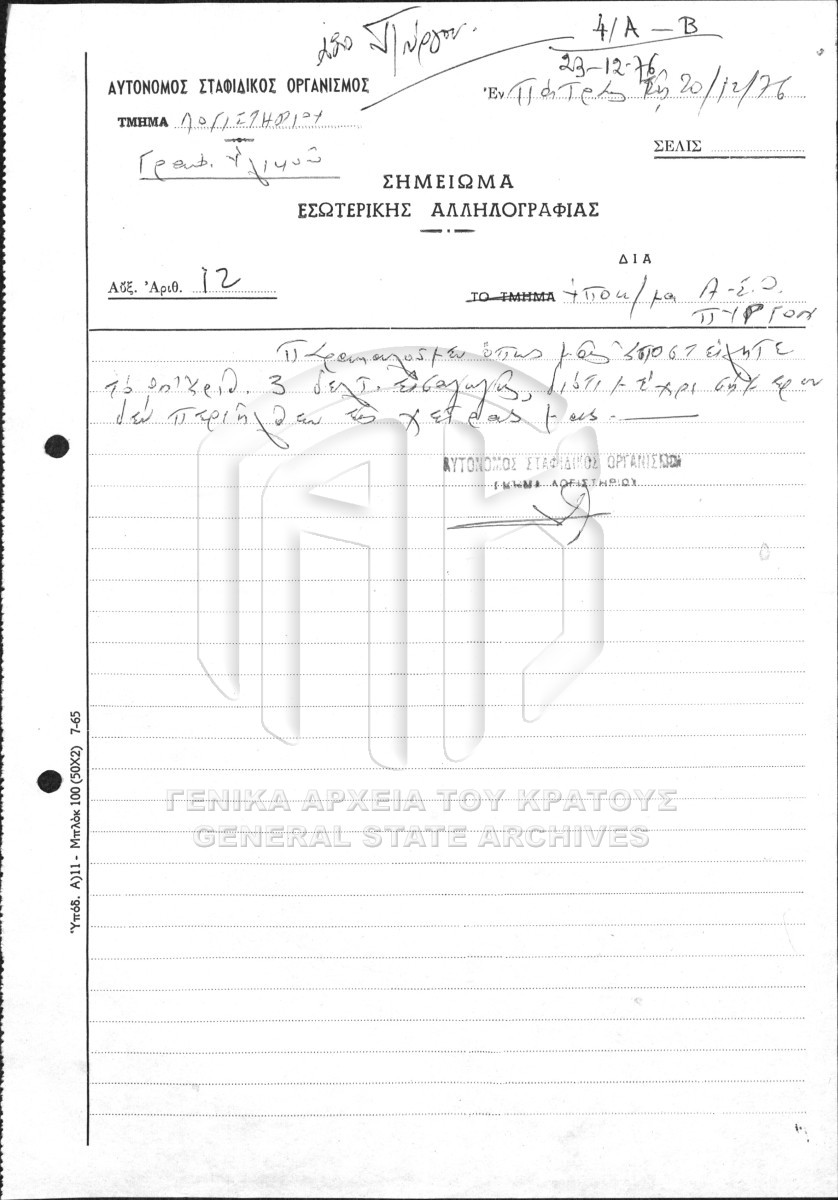 ὑπὸ Πύργου.
4/Α – Β
23-12-76
ΑΥΤΟΝΟΜΟΣ ΣΤΑΦΙΔΙΚΟΣ ΟΡΓΑΝΙΣΜΟΣ
Ἐν Πάτραις τῇ 20/12/76
ΤΜΗΜΑ ΛΟΓΙΣΤΗΡΙΟΥ
Γραφ. Ὑλικοῦ
ΣΕΛΙΣ
ΣΗΜΕΙΩΜΑ
ΕΣΩΤΕΡΙΚΗΣ ΑΛΛΗΛΟΓΡΑΦΙΑΣ
ΔΙΑ
Αὔξ. Ἀριθ. 12
ΤΟ ΤΜΗΜΑ Ὑποκ/μα Α.Σ.Ο.
ΠΥΡΓΟΥ
Παρακαλοῦμεν ὅπως μᾶς ἀποστείλητε
τό ὑπ' ἀριθ. 3 δελτ. εἰσαγωγῆς, διότι μέχρι σήμερον
δέν περιῆλθεν εἰς χεῖρας μας.
ΑΥΤΟΝΟΜΟΣ ΣΤΑΦΙΔΙΚΟΣ ΟΡΓΑΝΙΣΜΟΣ
ΤΜΗΜΑ ΛΟΓΙΣΤΗΡΙΟΥ
Ὑπόδ. Α)11 - Μπλόκ 100 (50Χ2) 7-65
ΓΕΝΙΚΑ ΑΡΧΕΙΑ ΤΟΥ ΚΡΑΤΟΥΣ
GENERAL STATE ARCHIVES